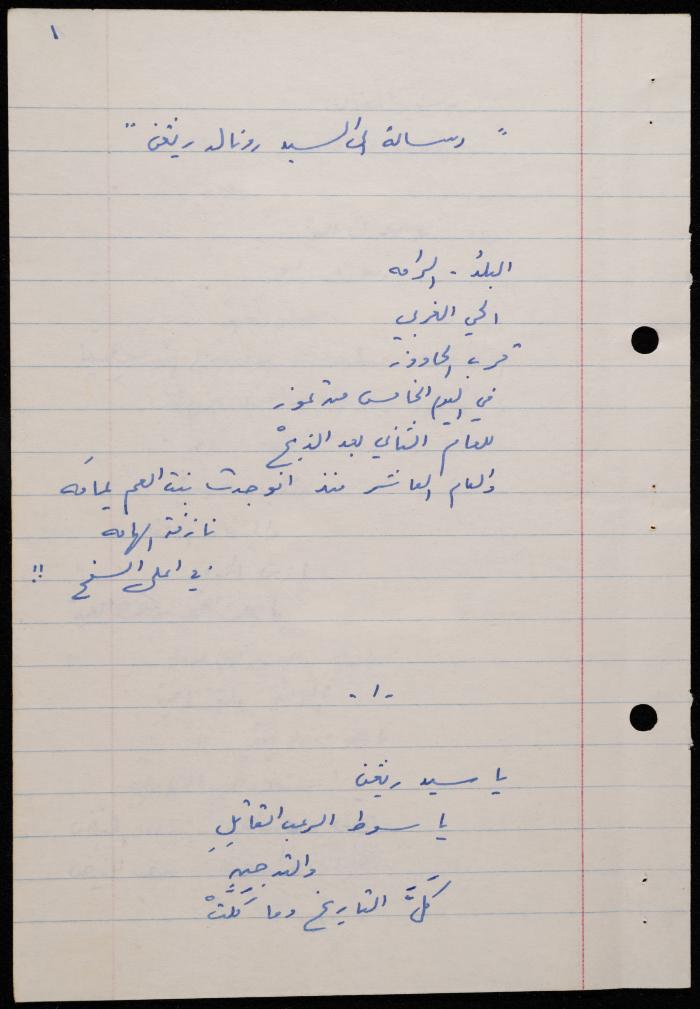 ١
" رسالة الى السيد رونالد ريغن "
البلدُ - الرامه
الحي الغربي
قرب الحاووز
في اليوم الخامس من تموز
للعام الثاني بعد الذبحْ
والعام العاشر منذ انوجدت بنت العم يمامَه
نازفة الهامه
في اعلى السفح !!
-١-
يا سيد ريغن
يا سوط الرعب القاتلِ
والتدجينِ
كَلَّ التاريخ وما كَلَّتْ